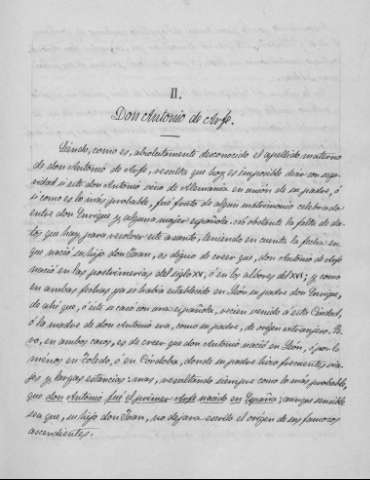 II.
Don Antonio de Arfe.
Siendo, como es, absolutamente desconocido el apellido materno
de don Antonio de Arfe, resulta que hoy es imposible decir con segu-
ridad si este don Antonio vino de Alemania en unión de su padre, ó
si como es lo más probable, fué fruto de algun matrimonio celebrado
entre don Enrique y alguna mujer española. No obstante la falta de da-
tos que hay para resolver este asunto, teniendo en cuenta la fecha en
que nació su hijo don Juan, es digno de creer que, don Antonio de Arfe
nació en las postrimerías del siglo XV, ó en los albores del XVI; y como
en ambas fechas ya se había establecido en León su padre don Enrique,
de ahí que, ó éste se casó con una española, recien venido á esta Ciudad,
ó la madre de don Antonio era, como su padre, de origen extranjero. Pe-
ro, en ambos casos, es de creer que don Antonio nació en León, ó por lo
menos en Toledo, ó en Córdoba, donde su padre hizo frecuentes via-
jes y largas estancias: mas, resultando siempre como lo más probable,
que don Antonio fué el primer Arfe nacido en España; aunque sensible
sea que, su hijo don Juan, no dejara escrito el origen de sus famosos
ascendientes.